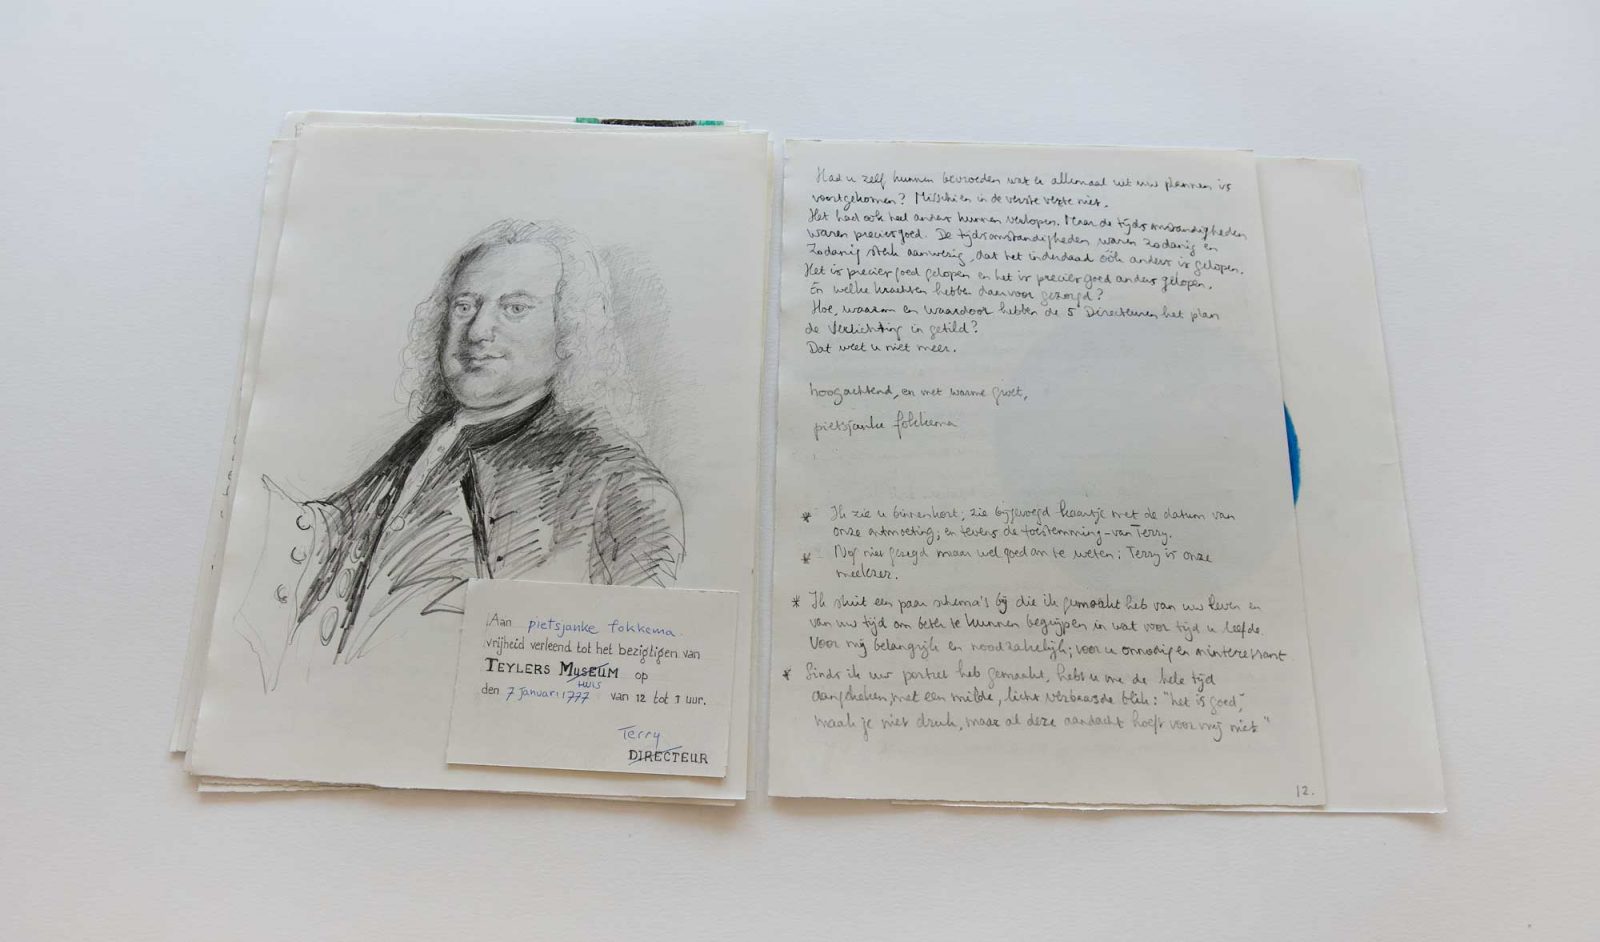 Aan pietsjanke fokkema.
vrijheid verleend tot het bezigtigen van
TEYLERS MUSEUM op
HUIS
den 7 januari 1777 van 12 tot 1 uur.
Terry
DIRECTEUR
Had u zelf kunnen bevroeden wat er allemaal uit uw plannen is
voortgekomen? Misschien in de verste verte niet.
Het had ook heel anders kunnen verlopen. Maar de tijdsomstandigheden
waren precies goed. De tijdsomstandigheden waren zodanig en
zodanig sterk aanwezig, dat het inderdaad óók anders is gelopen.
Het is precies goed gelopen en het is precies goed anders gelopen.
En welke krachten hebben daarvoor gezorgd?
Hoe, waarom en waardoor hebben de 5 Directeuren het plan
de Verlichting in getild?
Dat weet u niet meer.
hoogachtend, en met warme groet,
pietsjanke fokkema
* Ik zie u binnenkort; zie bijgevoegd kaartje met de datum van
onze ontmoeting, en tevens de toestemming van Terry.
* Nog niet gezegd maar wel goed om te weten: Terry is onze
meelezer.
* Ik sluit een paar schema's bij die ik gemaakt heb van uw leven en
van uw tijd om beter te kunnen begrijpen in wat voor tijd u leefde.
Voor mij belangrijk en noodzakelijk; voor u onnodig en oninteressant
* Sinds ik uw portret heb gemaakt, hebt u me de hele tijd
aangekeken, met een milde, licht verbaasde blik: "het is goed,
maak je niet druk, maar al deze aandacht hoeft voor mij niet"
12.